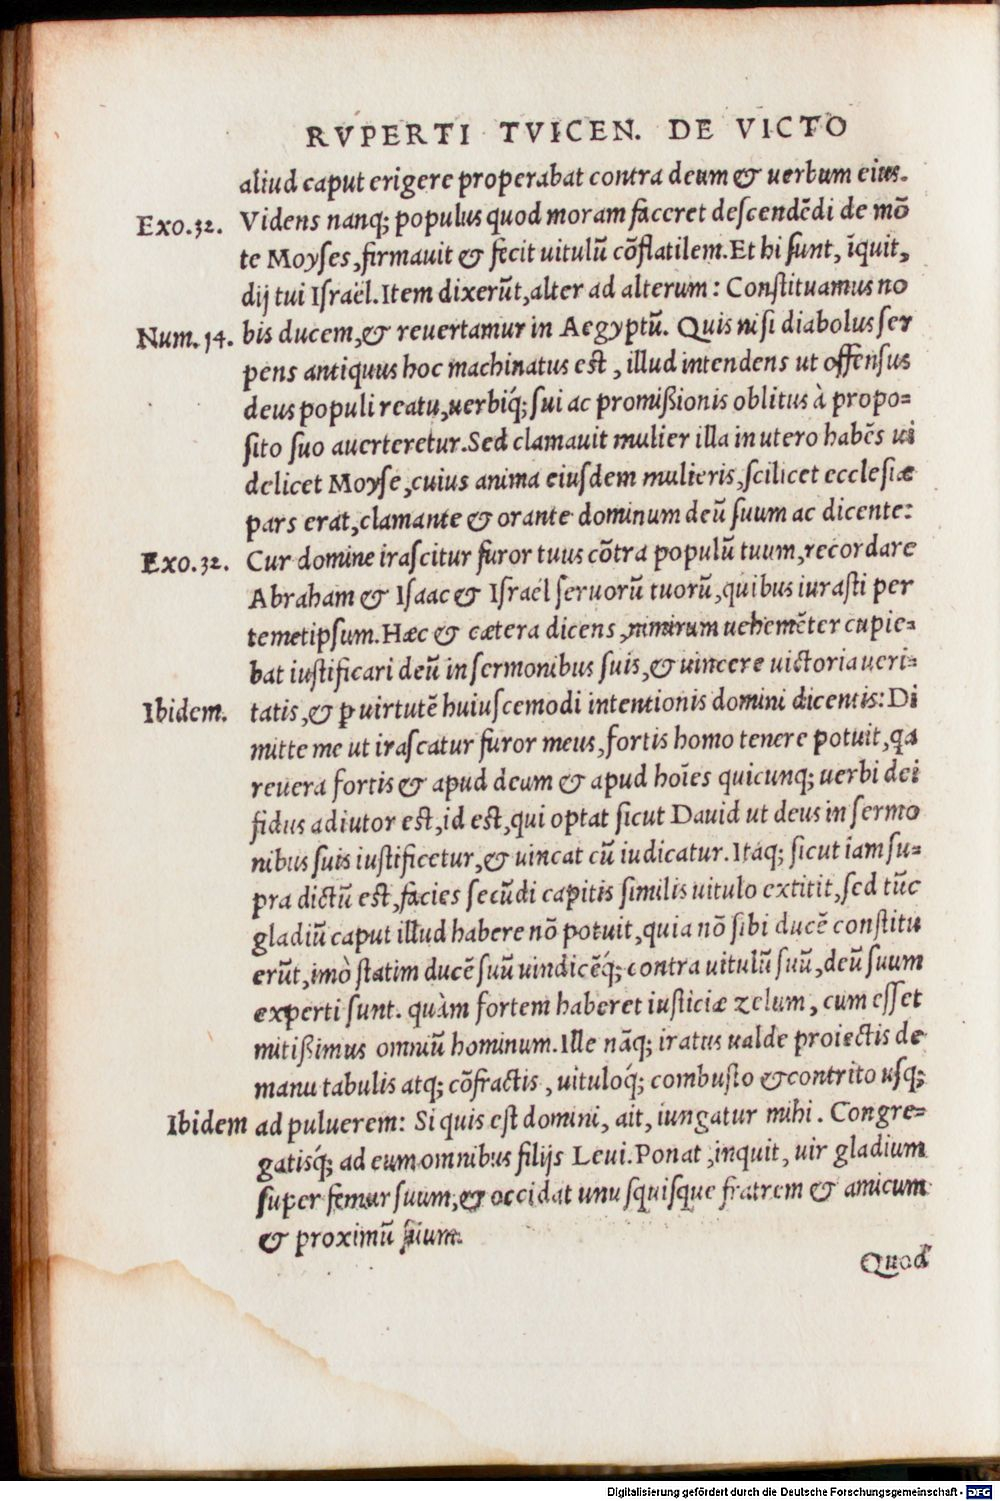 RVPERTI TVICEN. DE VICTO
aliud caput erigere properabat contra deum & uerbum eius.
Exo.32. Videns nanq; populus quod moram faceret descendēdi de mō
te Moyses, firmauit & fecit uitulū cōflatilem. Et hi sunt, īquit,
dij tui Israël. Item dixerūt, alter ad alterum: Constituamus no
Num.14. bis ducem, & reuertamur in Aegyptū. Quis nisi diabolus ser
pens antiquus hoc machinatus est, illud intendens ut offensus
deus populi reatu, uerbiq́; sui ac promißionis oblitus à propo=
sito suo auerteretur. Sed clamauit mulier illa in utero habēs ui
delicet Moyse, cuius anima eiusdem mulieris, scilicet ecclesiæ
pars erat, clamante & orante dominum deū suum ac dicente:
Exo.32. Cur domine irascitur furor tuus cōtra populū tuum, recordare
Abraham & Isaac & Israël seruorū tuorū, quibus iurasti per
temetipsum. Hæc & cætera dicens, nimirum uehemēter cupie=
bat iustificari deū in sermonibus suis, & uincere uictoria ueri=
Ibidem. tatis, & ꝑ uirtutē huiuscemodi intentionis domini dicentis: Di
mitte me ut irascatur furor meus, fortis homo tenere potuit, qa
reuera fortis & apud deum & apud hoīes quicunq; uerbi dei
fidus adiutor est, id est, qui optat sicut Dauid ut deus in sermo
nibus suis iustificetur, & uincat cū iudicatur. Itaq; sicut iam su=
pra dictū est, facies secūdi capitis similis uitulo extitit, sed tūc
gladiū caput illud habere nō potuit, quia nō sibi ducē constitu
erūt, imò statim ducē suū uindicēq́; contra uitulū suū, deū suum
experti sunt. quàm fortem haberet iusticiæ zelum, cum esset
mitißimus omniū hominum. Ille nāq; iratus ualde proiectis de
manu tabulis atq; cōfractis, uituloq́; combusto & contrito usq;
Ibidem ad puluerem: Si quis est domini, ait, iungatur mihi. Congre=
gatisq́; ad eum omnibus filijs Leui. Ponat, inquit, uir gladium
super femur suum, & occidat unusquisque fratrem & amicum
& proximū suum.
Quod
Digitalisierung gefördert durch die Deutsche Forschungsgemeinschaft - DFG